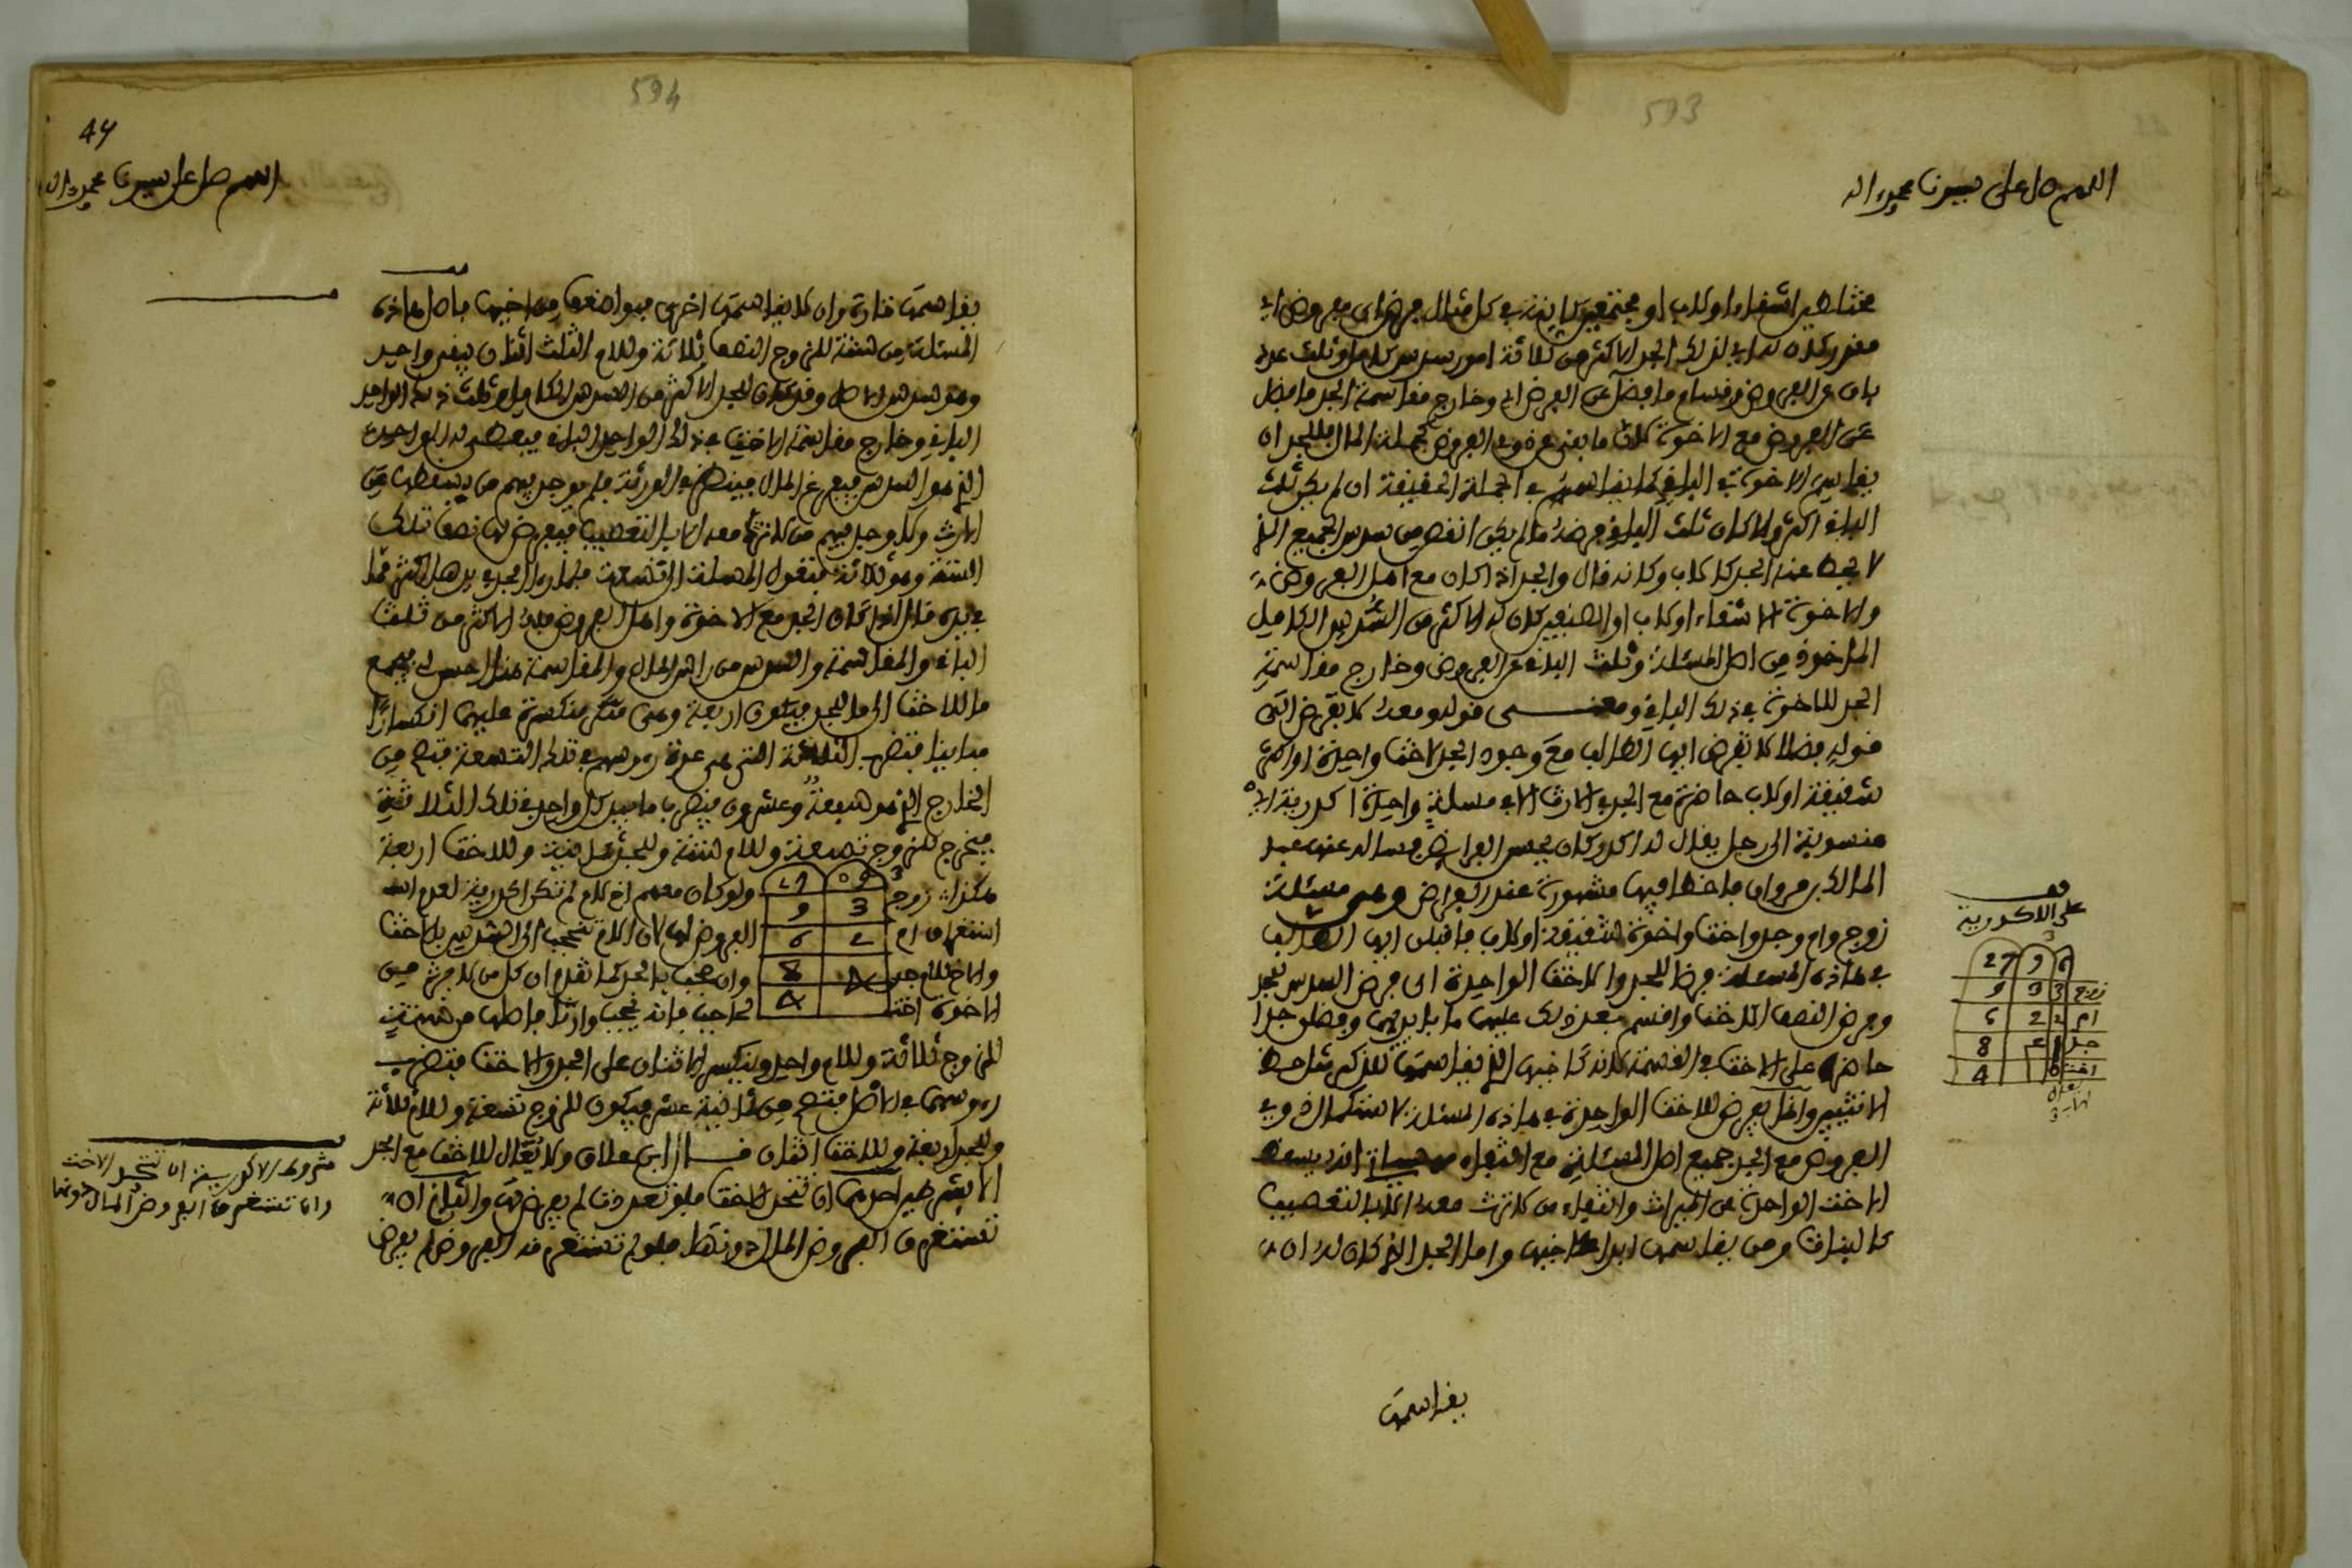 593
اللهم صل على سيدنا محمد واله
مختلطين اشقاء او لاب او مجتمعين كاينة في كل مثال فرض اي مفروض اي
مقدر كان له اي لذلك الجد الاكثر من ثلاثة امور سدس كامل او ثلث عدد
بان عن الفروض وقسام ما فضل عن الفرض اي وخارج مقاسمة الجد ما فضل
عن الفروض مع الاخوة كان ما بقي عن ذوي الفروض جملة المال فللجد ان
يقاسم الاخوة في الباقي كما يقاسمهم في الجملة الحقيقة ان لم يكن ثلث
الباقي اكثر والا كان ثلث الباقي فرضه ما لم يكن انقص من سدس الجميع الذي
لا يحط عنه الجد كل باب وكانه قال والجد اذا كان مع اهل الفروض
والاخوة الاشقاء او لاب او الصنفين كان له الاكثر من السدس الكامل
الماخوذ من اصل المسئلة وثلث الباقي عن الفروض وخارج مقاسمة
الجد للاخوة في ذلك الباقي ومعنى قوله ومعه لا تفرض التي
قوله فضلا لا تفرض ايها الطالب مع وجود الجد لاخت واحدة او اكثر
شقيقة او لاب حاضرة مع الجد في الارث الا في مسئلة واحدة اكدرية اي
منسوبة الى رجل يقال له اكدر كان يحسن الفرايض فساله عنها عبد
المالك بن مروان فاخطا فيها مشهورة عند الفراض وهي مسئلة
زوج وام وجد واخت واخوة شقيقة او لاب فاقبلن ايها الطالب
في هاذه المسئلة فرضا للجد والاخت الواحدة اي فرض السدس لجد
وفرض النصف للاخت واقسم بعد ذلك عليهما ما بايديهما وفضلن جدا
حاضرا على الاخت في القسمة لانه كاخيها الذي يقاسمها للذكر مثل حظ
الانثيين وانما يفرض للاخت الواحدة في هاذه المسئلة لاستكمال ذوي
الفروض مع الجد جميع اصل المسئلة مع انتفاء من يسقط
الاخت الواحدة عن الميراث وانتفاء من كانت معه التعصيب
كالبنات ومن يقاسمها ابدا كاخيها واما الجد الذي كان له ان
يقاسمها
على الاكدرية
27 9 6
زوج 3 3 9
ام 2 2 6
جد 1 8
اخت 4
594
44
اللهم صل على سيدنا محمد واله
يقاسمها تارة وان لا يقاسمها اخرى فبواضعها من اخيها فاصل هاذه
المسئلة من ستة للزوج النصف ثلاثة وللام الثلث اثنان يبقى واحد
وهو سدس الاصل وقد كان للجد الاكثر من السدس الكامل وثلث ذلك الواحد
الباقي وخارج مقاسمة الاخت في ذلك الواحد الباقي فيعطى له الواحد
الذي هو السدس فيفرغ المال فينظر في الورثة فلم يوجد فيهم من يسقطها عن
الارث ولا وجد فيهم من كانت معه التعصيب فيفرض لها نصف تلك
الستة وهو ثلاثة فتعول المسئلة الى تسعة فلما رءا الجد
في يده قال اذا كان الجد مع الاخوة واهل الفروض فله الاكثر من ثلث
الباقي والمقاسمة والسدس من راس المال والمقاسمة هنا احسن لي فيجمع
ما للاخت الى ما للجد فيكون اربعة وهي منكسرة عليهما انكسارا
مباينا فتضرب الثلاثة التي هي عدة رءوسهم في تلك التسعة فتصح من
الخارج الذي هو سبعة وعشرون فتضرب ما بيد كل واحد في تلك الثلاثة
فيخرج للزوج تسعة وللام ستة وللجد ثمانية وللاخت اربعة
هكذا زوج 3 9 ولو كان معهم اخ لام لم تكن اكدرية لعدم
استغراق ام 2 6 الفروض لها لان الام تحجب الى السدس بالاخت
والاخ للام جد 8 وان حجب بالجد كما تقدم ان كل من لا يرث من
الاخوة اخت 4 لحاجب فانه يحجب وارثا فاصلها من ستة
للزوج ثلاثة وللام واحد وينكسر اثنان على الجد والاخت فتضرب
رءوسهما في الاصل فتصح من ثمانية عشر فيكون للزوج تسعة وللام ثلاثة
وللجد اربعة وللاخت اثنان قال ابن علاق ولا يعال للاخت مع الجد
الا بشرطين احدهما ان تتحد الاخت فلو تعددت لم يفرض لها والثاني ان
تستغرق الفروض المال دونها فلو لم تستغرقه الفروض لم يفرض
شروط الاكدرية ان تتحد الاخت
وان تستغرق الفروض المال دونها